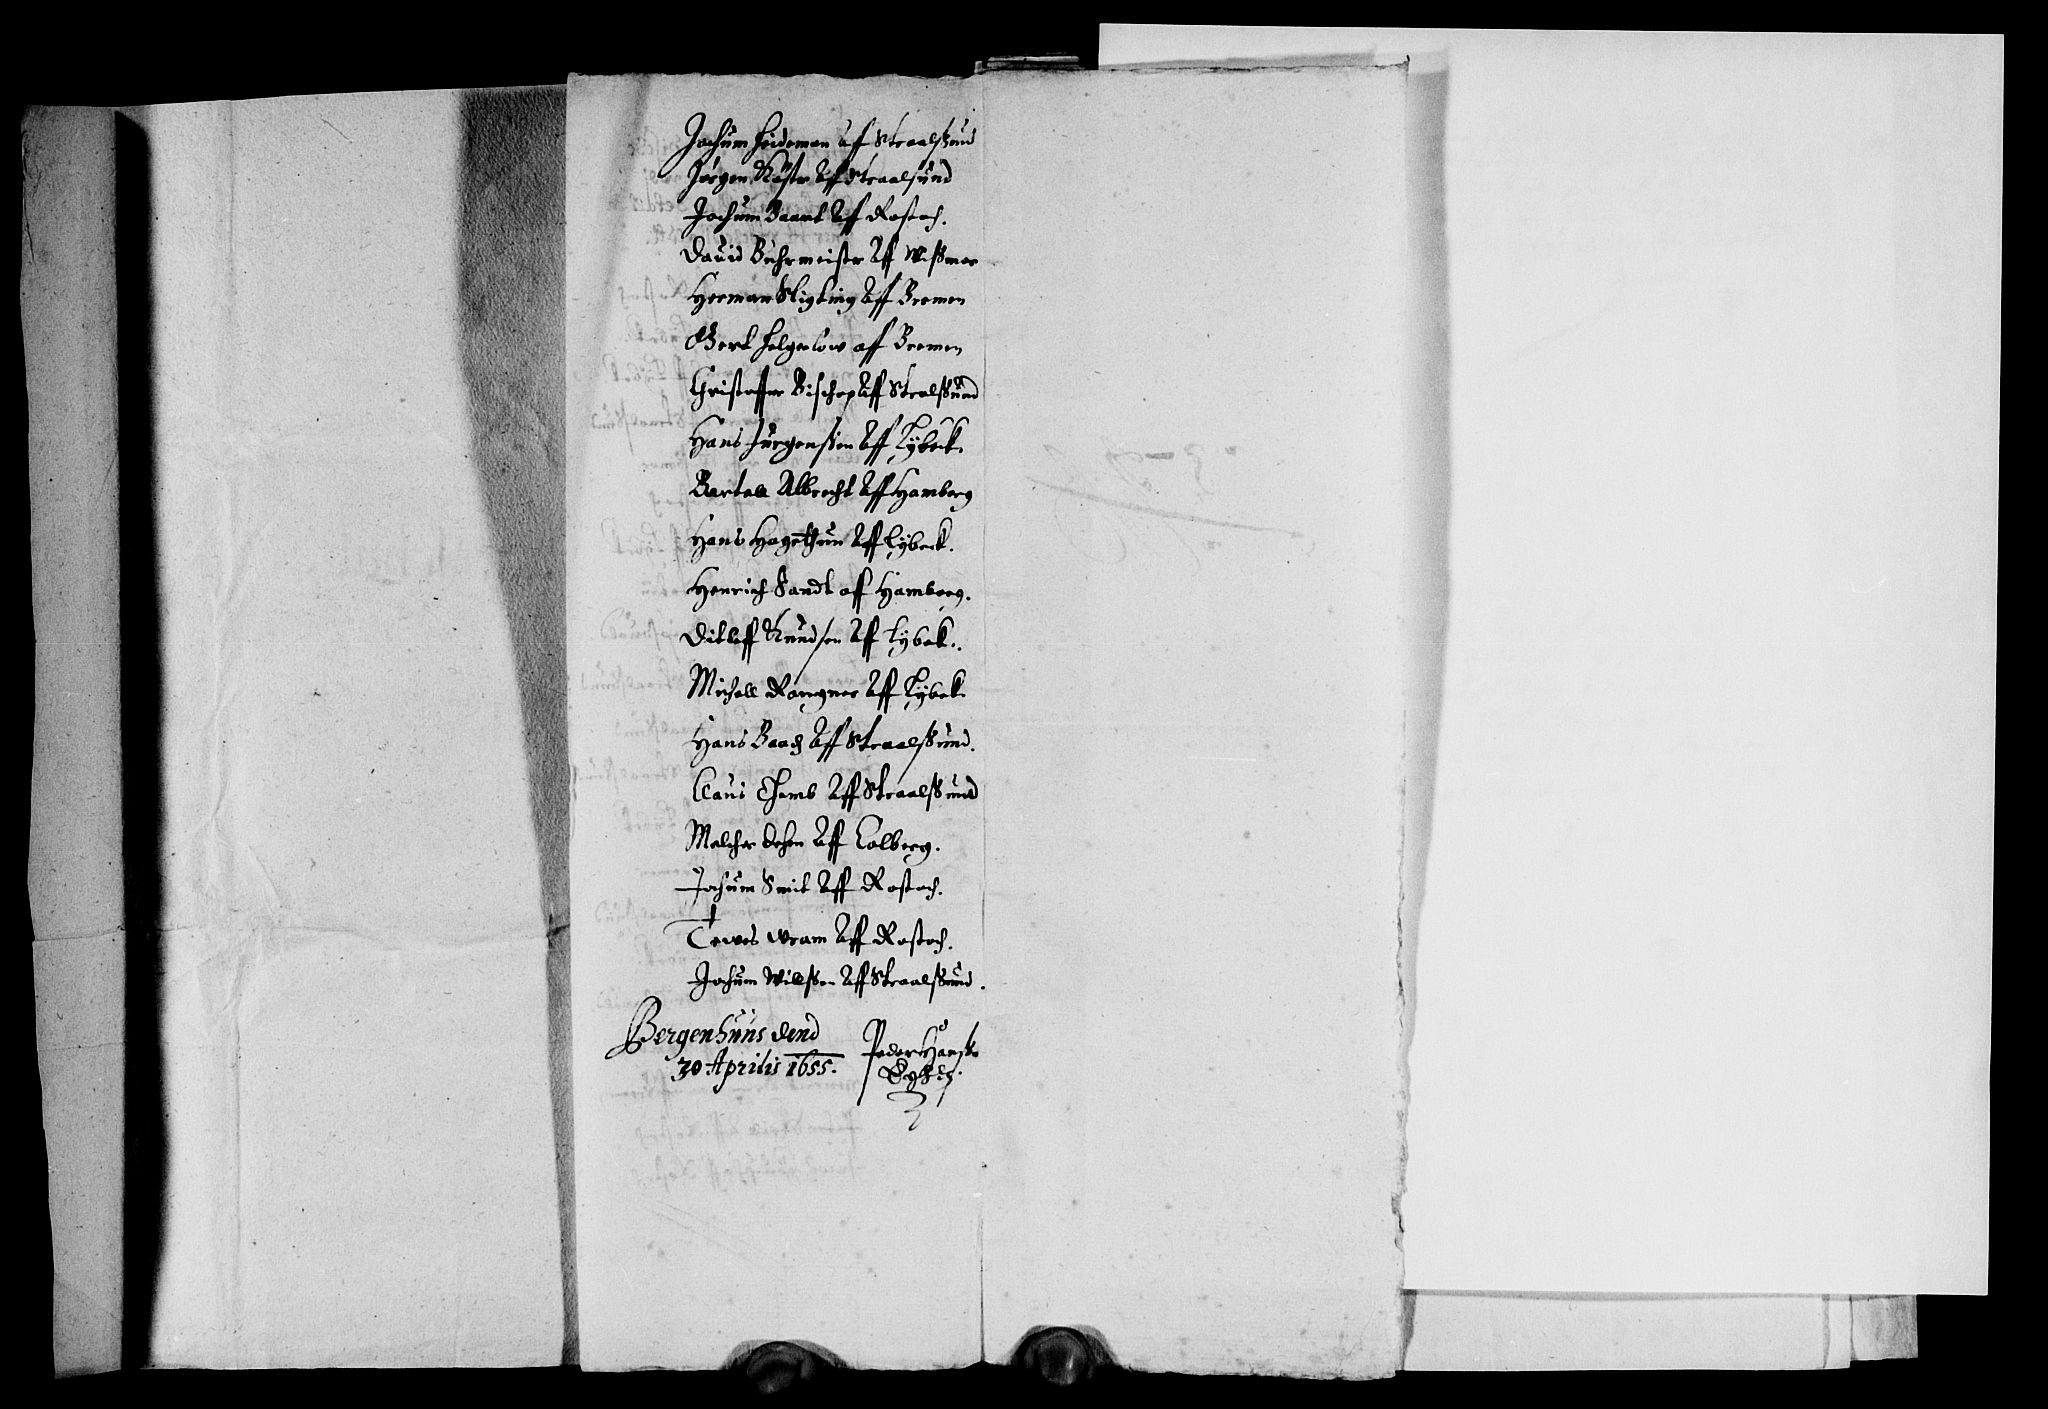 Jochum Heideman Aff Straalsund
Jørgen Köster Aff Straalsund
Jochum Baart Aff Rostoch.
Dauid Buhrmeister Aff Wißmer
Herman Aff Bremen
Gert aff Bremen
Christoffer Bischop Aff Stralßund
Hans Jurgenßen Aff Lybeck.
Bartell Albrecht Aff Hamberg
Hans Hagethun Aff Lybeck.
Henrich Sandt aff Hamberg.
Ditleff Knudsen Aff Lybek.
Michell Aff Lybek.
Hans Baach Aff Straalßund.
Claus Aff Straalßund
Melcher Dehn Aff Colberg.
Jochum Smit Aff Rostoch.
Tewes Wram Aff Rostoch.
Jochum Willßen Aff Straalßund.
Bergenhuus dend
30 Aprilis 1655.
Peder